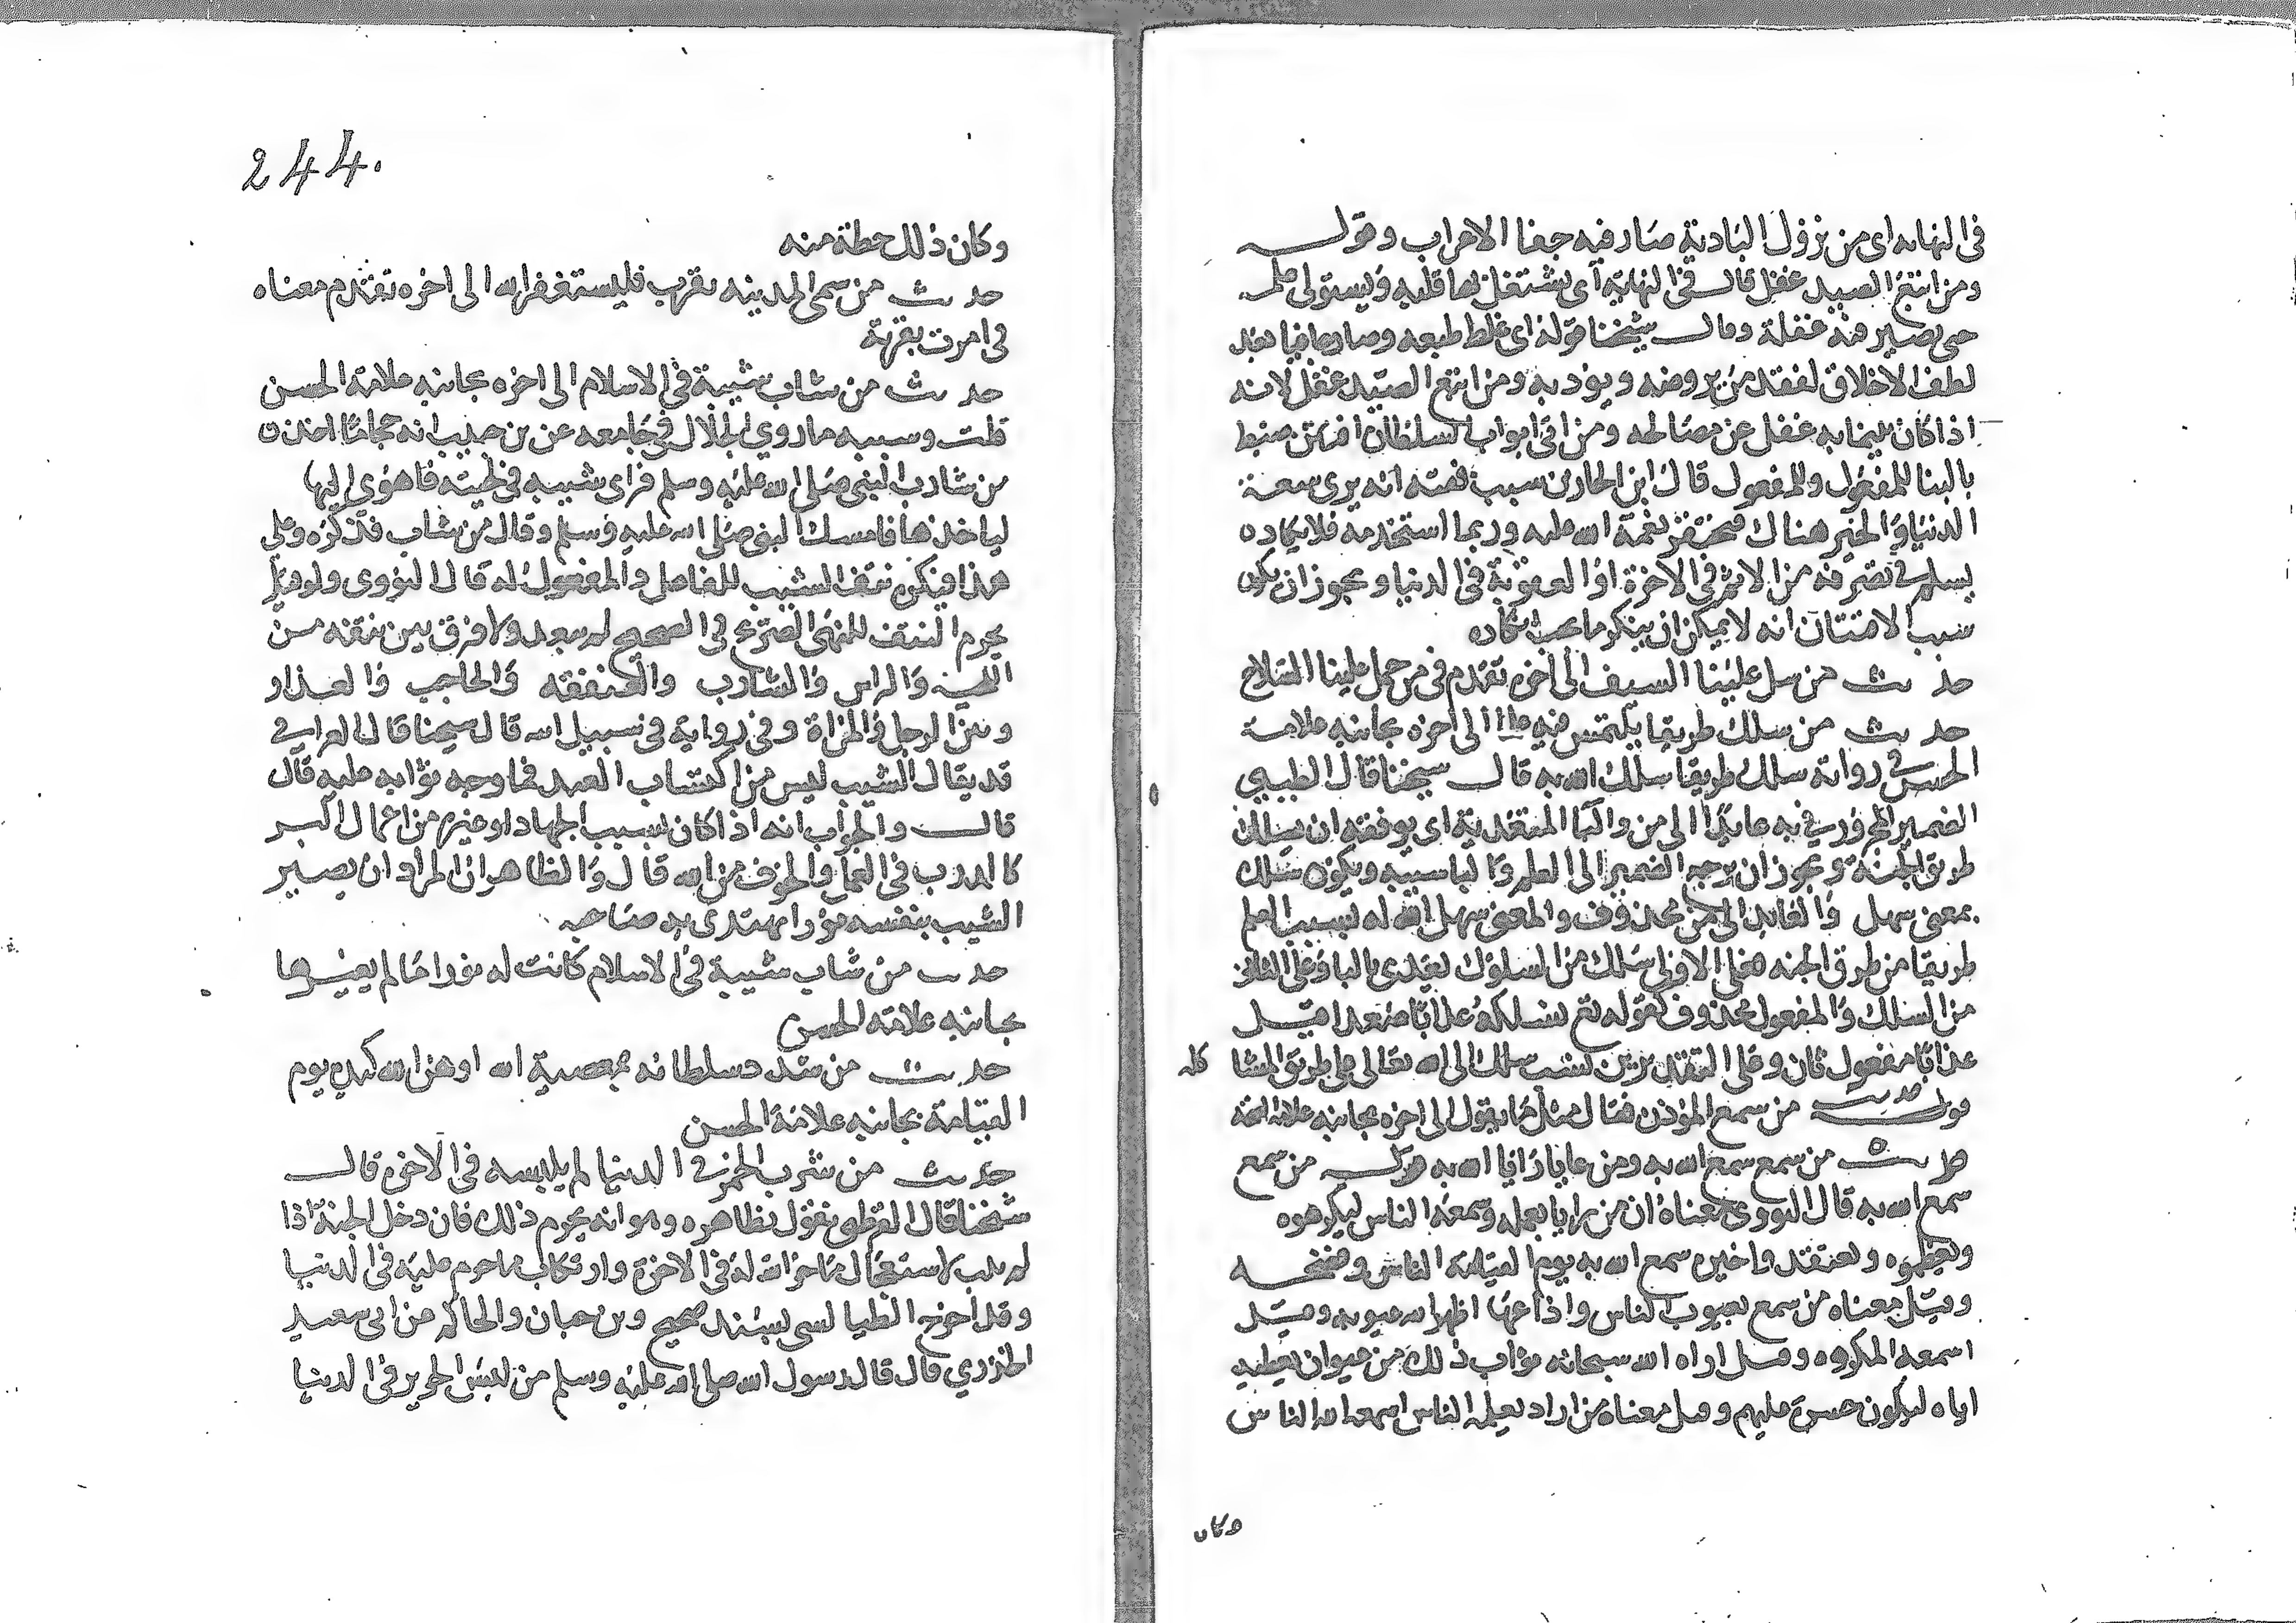 في النهايه اى من نزول البادية صار فيه جفا الاعراب وقوله
ومن اتبع الصيد غفل قال في النهاية اى يشتغل بها قلبه ويستولى عليه
حتى يصير فيه غفلة وقال شيخنا قوله اى غلط طبعه وصار جافيا بعد
لطف الاخلاق لفقد من يروضه ويؤدبه ومن اتبع الصيد غفل لانه
اذا كان غفل عن مصالحه ومن اتى ابواب السلطان افتتن ضبط
بالبنا للمفعول قال ابن الحاج سبب فتنته انه يرى سعة
الدنيا والخير هناك فيحتقر نعمة الله عليه وربما استخدمه فلا يكاد
يسلم في تصرفه من الاثم في الاخرة او العقوبة في الدنيا ويجوز ان يكون
سبب الافتتان انه لا يمكن ان ينكر ما يجب انكاره
حديث من سل علينا السيف الى اخره تقدم في من حمل علينا السلاح
حديث من سلك طريقا يلتمس فيه علما الى اخره بجانبه علامة
الحسن في رواية سلك طريقا سلك الله به قال شيخنا قال الطيبي
الضمير المجرور في به عايد الى من والبا المتعدية اى يوفقه ان يسلك
طريق الجنة ويجوز ان يرجع الضمير الى العلم والبا سببيه ويكون سلك
بمعنى سهل والعايد الى من محذوف والمعنى سهل الله له بسبب العلم
طريقا من طرق الجنه فعلى الاول سلك من السلوك تعدى بالبا وعلى الثاني
من السلك والمفعول محذوف كقوله تع نسلكه عذابا صعدا قيل
عذابا مفعول ثان وعلى التقديرين نسب سلك الى الله تعالى على طريق المشا كله
قوله حديث من سمع المؤذن فقال مثل ما يقول الى اخره بجانبه علامة الصحة
حديث من سمع سمع الله به ومن رايا رايا الله به قوله من سمع
سمع الله به قال النووي معناه ان من رايا بعمله وسمعه الناس ليكرموه
ويعظموه ويعتقدوا خيره سمع الله به يوم القيامة الناس وفضحه
وقيل معناه من سمع بعيوب الناس واذاعها اظهر الله عيوبه وقيل
اسمعه المكروه وقيل اراه الله سبحانه ثواب ذلك من غير ان يعطيه
اياه ليكون حسرة عليهم وقيل معناه من اراد بعمله الناس اسمعه الله الناس
وكان
244.
وكان ذلك حظه منه
حديث من سمى المدينه يثرب فليستغفر الله الى اخره تقدم معناه
في امرت بقرية
حديث من شاب شيبة في الاسلام الى اخره بجانبه علامة الحسن
قلت وسببه ما روى الخلال في جامعه عن بن حبيب انه حجاما اخذ
من شارب النبي صلى الله عليه وسلم فراى شيبه في لحيته فاهوى اليها
لياخذها فامسك النبي صلى الله عليه وسلم وقال من شاب فذكره وعلى
هذا فيكره نتف الشيب للفاعل والمفعول له قال النووي ولو قيل
يحرم النتف للنهى الصريح في الصحيح لم يبعد ولا فرق بين نتفه من
اللحية والراس والشارب والعنفقه والحاجب والعذار
ومن الرجل والمراة وفي رواية في سبيل الله قال شيخنا قال العراقي
قد يقال الشيب ليس من اكتساب العبد فما وجه ثوابه عليه قال
قال والجواب انه اذا كان بسبب الجهاد او غيره من اعمال البر
كالدوب في العمل والخوف من الله قال والظاهر ان المراد ان يصير
الشيب بنفسه نورا يهتدى به صاحبه
حديث من شاب شيبة في الاسلام كانت له نورا ما لم يغيرها
بجانبه علامة الحسن
حديث من شدد سلطانه بمعصية الله اوهن الله كيده يوم
القيامة بجانبه علامة الحسن
حديث من شرب الخمر في الدنيا لم يلبسه في الاخرة قال
شيخنا قال القرطبي نقول بظاهره وهو انه يحرم ذلك فان دخل الجنة اذا
لم يتب لاستعجال ما اخر الله له في الاخرة وارتكاب ما حرم عليه في الدنيا
وقد اخرج الطيالسى بسند صحيح وبن حبان والحاكم عن ابى سعيد
الخدري قال قال رسول الله صلى الله عليه وسلم من لبس الحرير في الدنيا